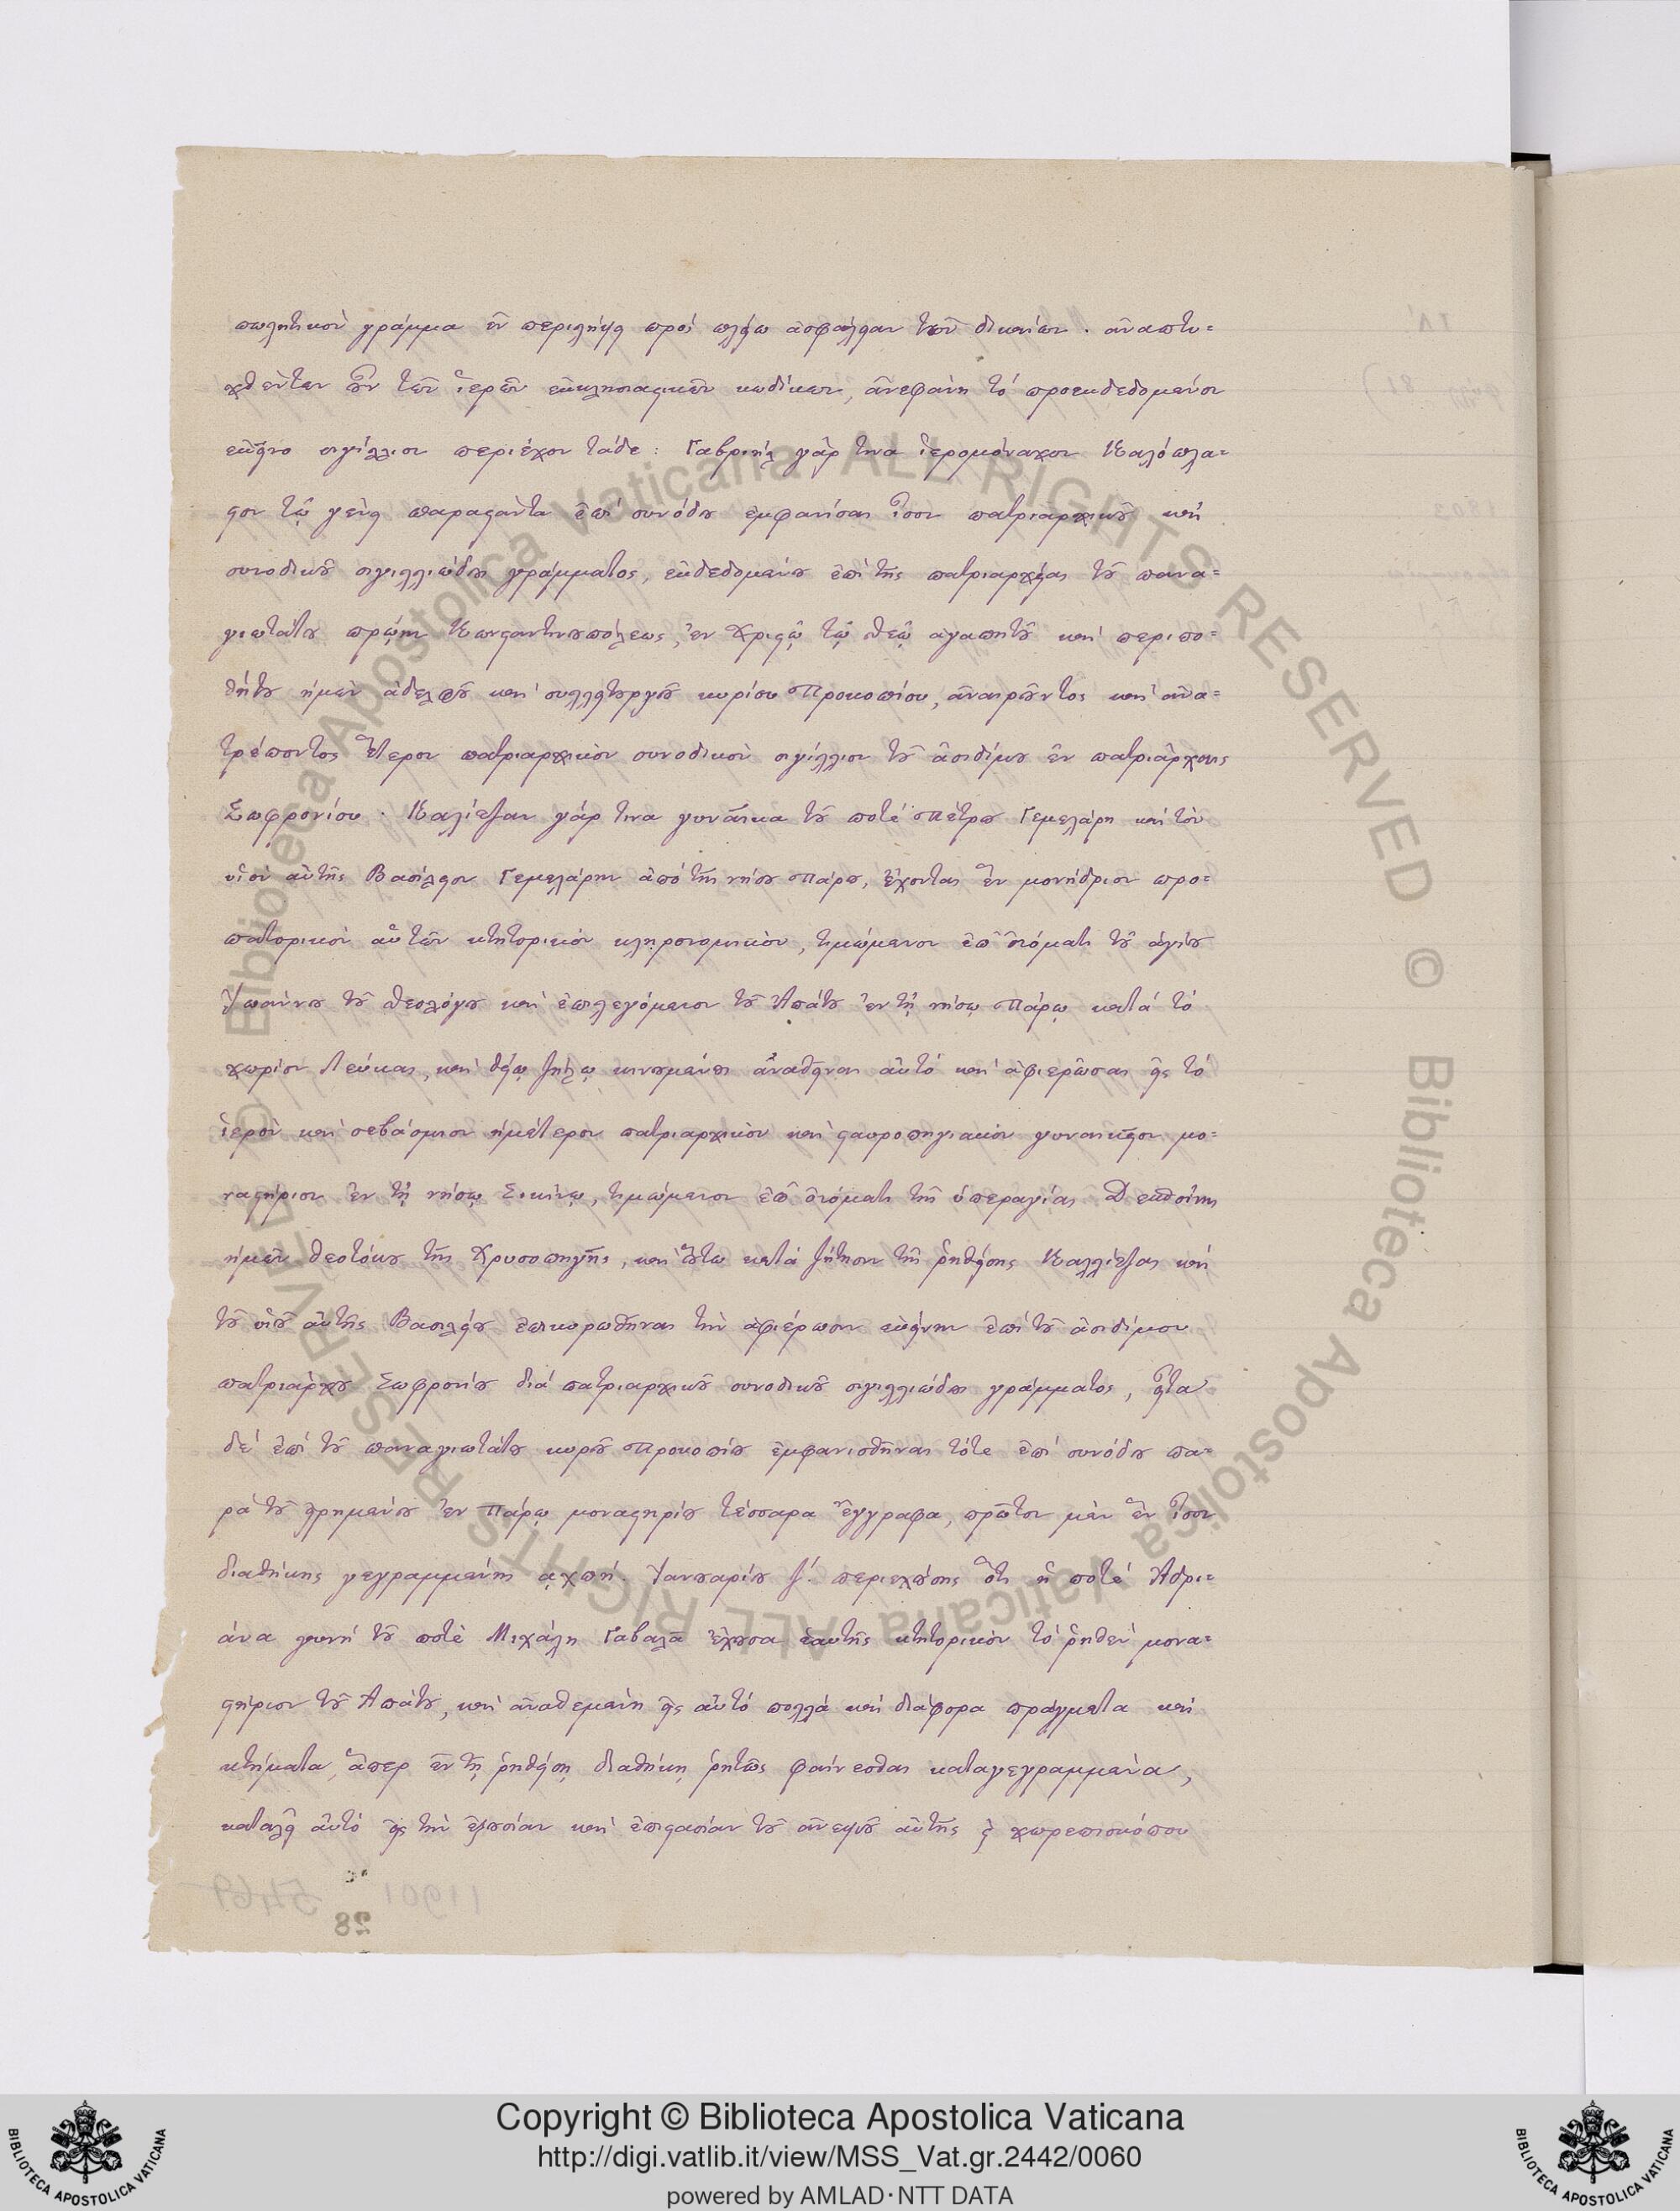 πωλητικὸν γράμμα ἐν περιλήψει πρὸς πλείω ἀσφάλειαν τῶν δικαίων. ἀναπτυ=
χθέντων οὖν τῶν ἱερῶν ἐκκλησιαστικῶν κωδίκων, ἀνεφάνη τὸ προεκδεδομένον
ἐκεῖνο σιγίλλιον περιέχον τάδε: Γαβριὴλ γάρ τινα ἱερομόναχον Καλόπλα=
στον τῷ γένει παραστάντα ἐπὶ συνόδου ἐμφανίσαι ἴσον πατριαρχικοῦ καὶ
συνοδικοῦ σιγιλλιώδους γράμματος, ἐκδεδομένου ἐπὶ τῆς πατριαρχείας τοῦ πανα=
γιωτάτου πρώην Κωνσταντινουπόλεως, ἐν Χριστῷ τῷ Θεῷ ἀγαπητοῦ καὶ περιπο=
θήτου ἡμῶν ἀδελφοῦ καὶ συλλειτουργοῦ κυρίου Προκοπίου, ἀναιροῦντος καὶ ἀνα=
τρέποντος ἕτερον πατριαρχικὸν συνοδικὸν σιγίλλιον τοῦ ἀοιδίμου ἐν πατριάρχαις
Σωφρονίου. Καλίτζαν γάρ τινα γυναῖκα τοῦ ποτὲ Πέτρου Γεμελάρη καὶ τὸν
υἱὸν αὐτῆς Βασίλειον Γεμελάρην ἀπὸ τῆς νήσου Πάρου, ἔχοντας ἓν μονήδριον προ=
πατορικὸν αὐτῶν κτητορικὸν κληρονομικὸν, τιμώμενον ἐπ' ὀνόματι τοῦ ἁγίου
Ἰωάννου τοῦ Θεολόγου καὶ ἐπιλεγόμενον τοῦ Ἀπάτου ἐν τῇ νήσῳ Πάρῳ κατὰ τὸ
χωρίον Λεύκας, καὶ θείῳ ζήλῳ κινουμένους ἀναθεῖναι αὐτὸ καὶ ἀφιερῶσαι εἰς τὸ
ἱερὸν καὶ σεβάσμιον ἡμέτερον πατριαρχικὸν καὶ σταυροπηγιακὸν γυναικεῖον μο=
ναστήριον ἐν τῇ νήσῳ Σικίνῳ, τιμώμενον ἐπ' ὀνόματι τῆς ὑπεραγίας Δεσποίνης
ἡμῶν Θεοτόκου τῆς Χρυσοπηγῆς, καὶ οὕτω κατὰ ζήτησιν τῆς ῥηθείσης Καλλίτζας καὶ
τοῦ υἱοῦ αὐτῆς Βασιλείου ἐπικυρωθῆναι τὴν ἀφιέρωσιν ἐκείνην ἐπὶ τοῦ ἀοιδίμου
πατριάρχου Σωφρονίου διὰ πατριαρχικοῦ συνοδικοῦ σιγιλλιώδους γράμματος, εἶτα
δὲ ἐπὶ τοῦ παναγιωτάτου κυροῦ Προκοπίου ἐμφανισθῆναι τότε ἐπὶ συνόδου πα=
ρὰ τοῦ εἰρημένου ἐν Πάρῳ μοναστηρίου τέσσαρα ἔγγραφα, πρῶτον μὲν ἓν ἴσον
διαθήκης γεγραμμένης αχπή. Ἰανουαρίου ζ΄. περιεχούσης ὅτι ἡ ποτὲ Ἀδρι=
άνα γυνὴ τοῦ ποτὲ Μιχάλη Γαβαλᾶ ἔχουσα ἑαυτῆς κτητορικὸν τὸ ῥηθὲν μονα=
στήριον τοῦ Ἀπάτου, καὶ ἀναθεμένη εἰς αὐτὸ πολλὰ καὶ διάφορα πράγματα καὶ
κτήματα, ἅπερ ἐν τῇ ῥηθείσῃ διαθήκῃ ῥητῶς φαίνεσθαι καταγεγραμμένα,
καταλεῖ αὐτὸ εἰς τὴν ἐξουσίαν καὶ ἐπιστασίαν τοῦ ἀνεψιοῦ αὐτῆς χωρεπισκόπου
28
Copyright © Biblioteca Apostolica Vaticana
http://digi.vatlib.it/view/MSS_Vat.gr.2442/0060
powered by AMLAD·NTT DATA